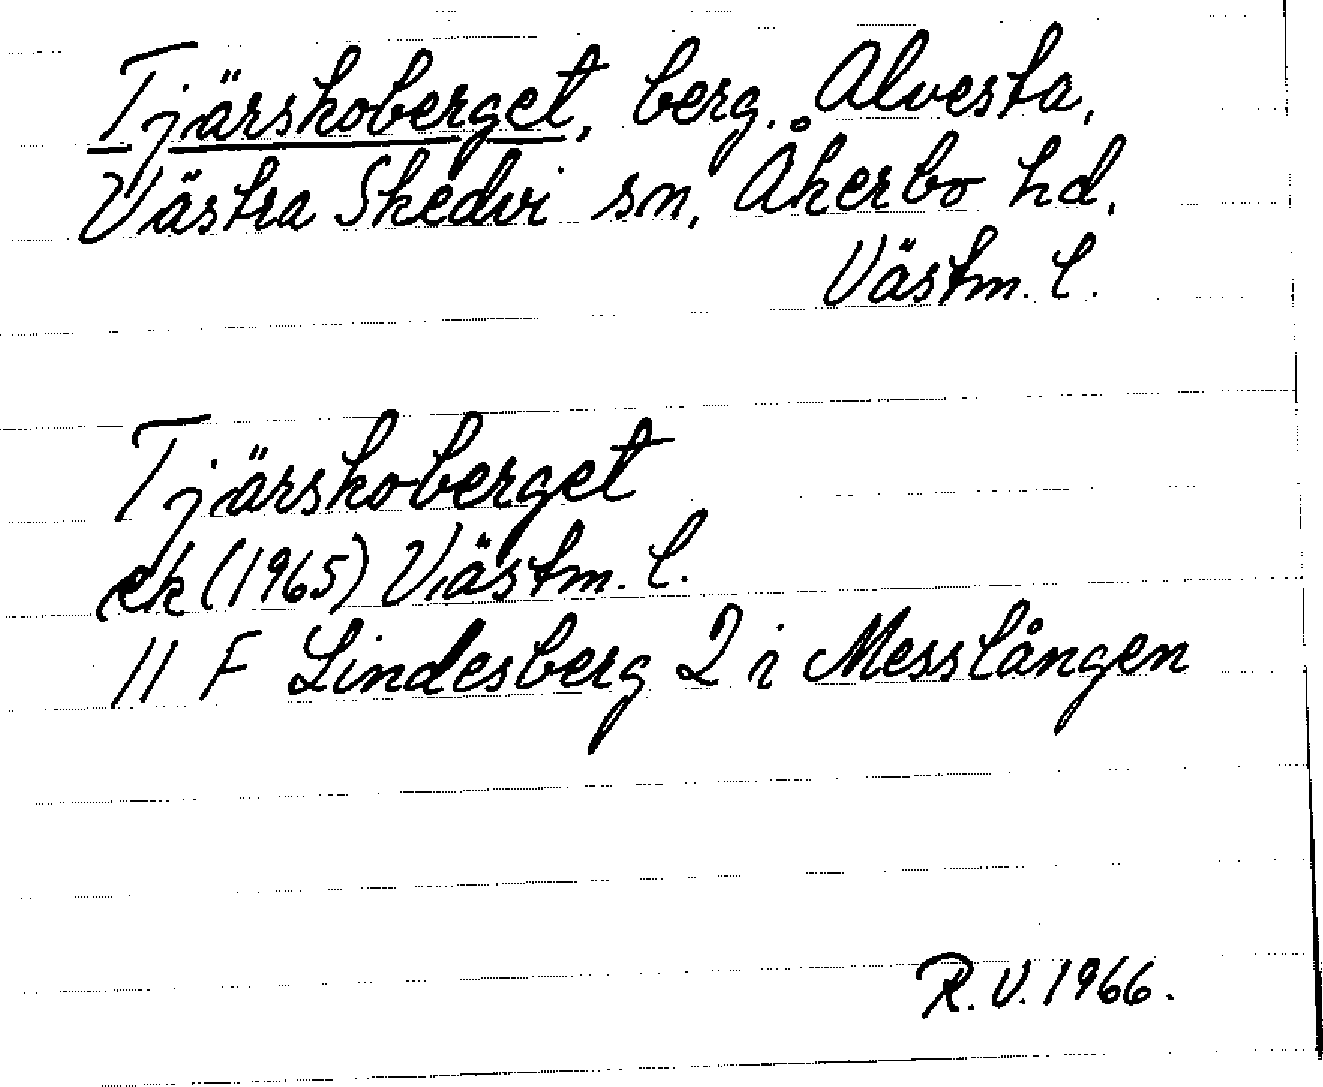 Tjärskoberget, berg. Alvesta,
Västra Skedvi sn, Åkerbo hd,
Västm. l.
Tjärskoberget
ek (1965) Västm. l.
11 F Lindesberg 2 i Messlången
R. V. 1966.